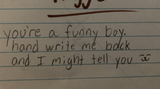 you're a funny boy.
hand write me back
and I might tell you